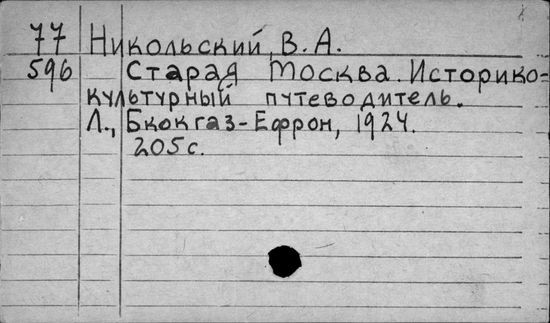 77 Никольский, В. А.
596 Старая Москва. Историко-
культурный путеводитель.
Л., Бкокгаз-Ефрон, 1924.
205 с.